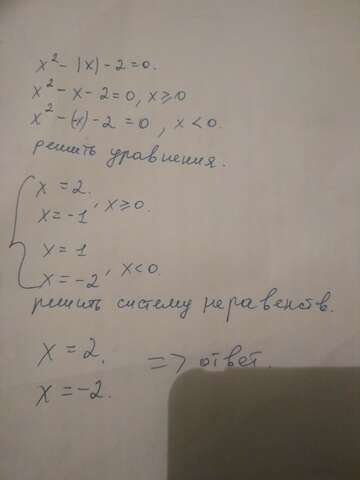 x² - |x| - 2 = 0.
x² - x - 2 = 0, x ≥ 0
x² - (-x) - 2 = 0, x < 0.
решить уравнения.
x = 2.
x = -1, x ≥ 0.
x = 1
x = -2, x < 0.
решить систему неравенств.
x = 2.
x = -2. => ответ.